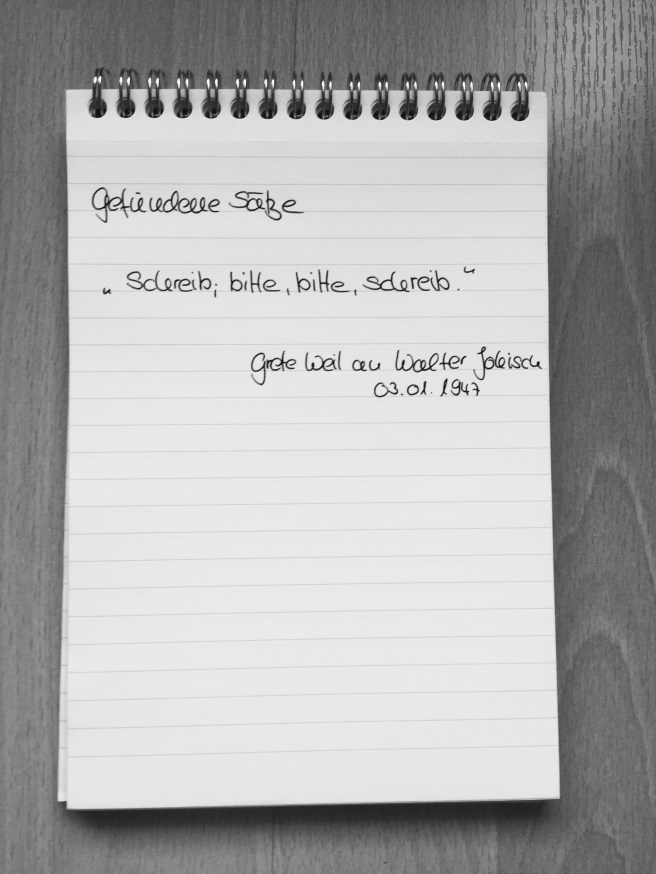 Gefundene Sätze
„Schreib, bitte, bitte, schreib."
Grete Weil an Walter Jokisch
03.01.1947